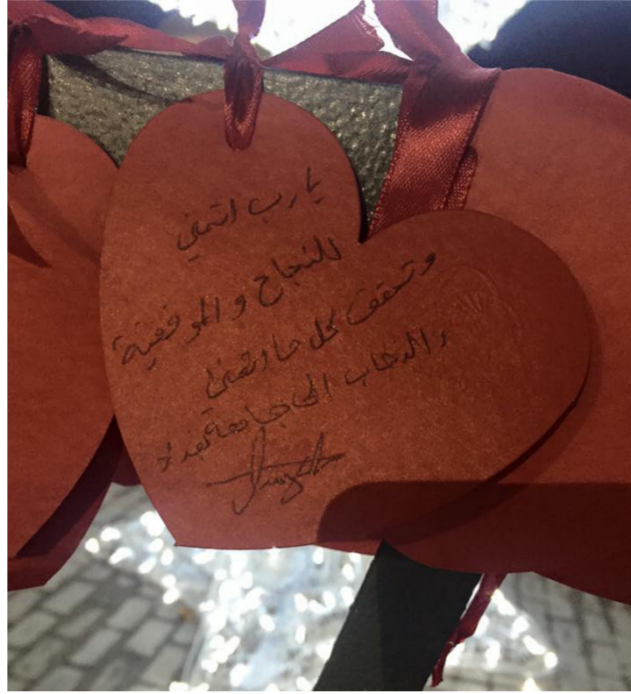 يارب اتمنى
للنجاح والموفقية
وتحقق كل ما اتمنى
والذهاب الى جامعة بغداد